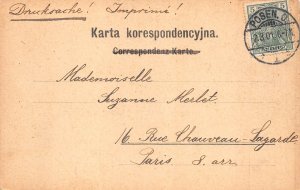 Drucksache! Imprimé!
Karta korespondencyjna.
Correspondenz-Karte.
Mademoiselle
Suzanne Merlet
16 Rue Chauveau-Lagarde
Paris 8. arr
POSEN
5